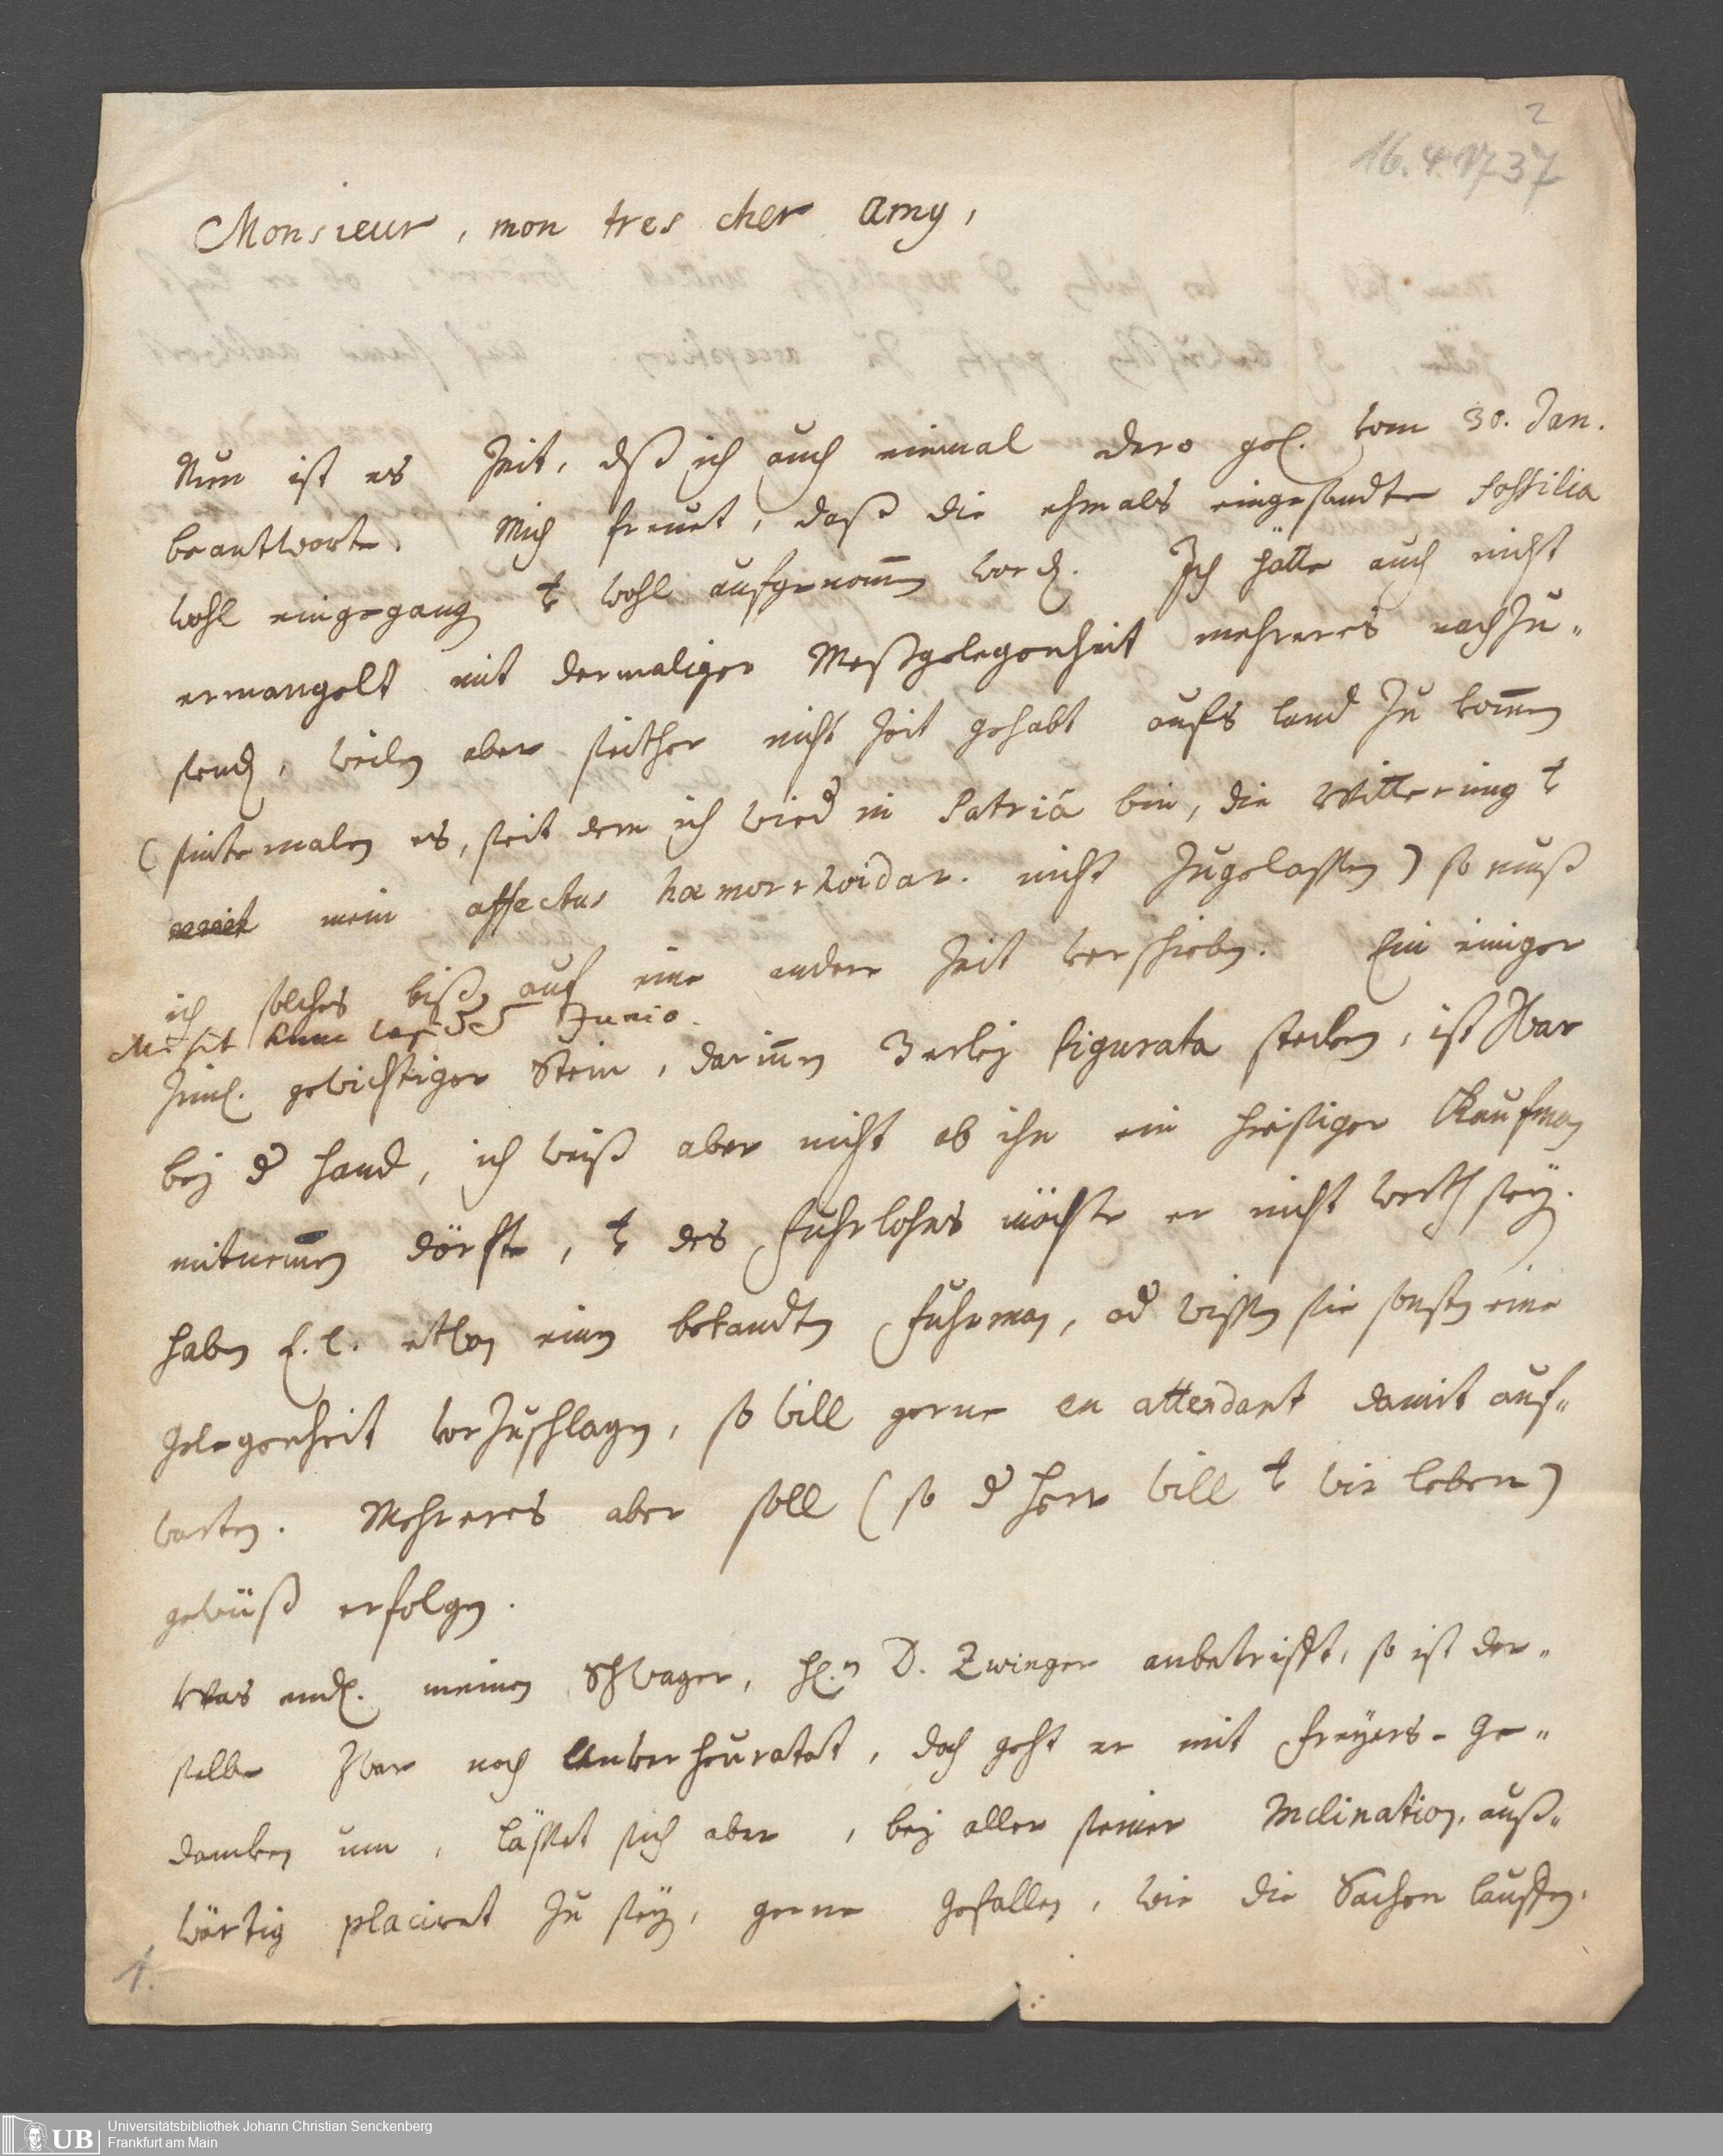 2
16.4.1737
Monsieur, mon tres cher Amy,
Nun ist es Zeit, dß ich auch einmal dero gel. vom 30. Jan.
beantworte. Mich freuet, daß die ehmals eingesandte Fossilia
wohl eingegang. & wohl aufgenom̅en word. Ich hätte auch nicht
ermangelt mit dermaliger Meßgelegenheit mehreres nachzu-
send, weilen aber seither nicht Zeit gehabt aufs land zu kom̅en
(sintemalen es, seit dem ich wied in Patriâ bin, die Witterung &
mein affectus hæmorrhoidar. nicht zugelassen) so muß
ich solches biß auf eine andere Zeit verschieben. Ein einiger
Junio.
ziml. gewichtiger Stein, darin̅en 3erley figurata stecken, ist zwar
bey d hand, ich weiß aber nicht ob ihn ein hiesiger Kaufman
mitnem̅en dörfte, & des Fuhrlohns möchte er nicht werth seÿ.
haben E. E. etwan einen bekandten Fuhrman, od wissen sie sonsten eine
gelegenheit vorzuschlagen, so will gerne en attendant damit auf-
warten. Mehreres aber soll (so d Herr will & wir leben)
gewüß erfolgen.
Was endl. meinen Schwager, H.n D. Zwinger anbetrifft, so ist der-
selbe zwar noch unverheuratet, doch geht er mit Freyers-Ge-
dancken um, lässet sich aber, bey aller seiner Inclination, auß-
wärtig placiret zu seÿn, gerne gefallen, wie die Sachen lauffen.
1.
UB
Universitätsbibliothek Johann Christian Senckenberg
Frankfurt am Main